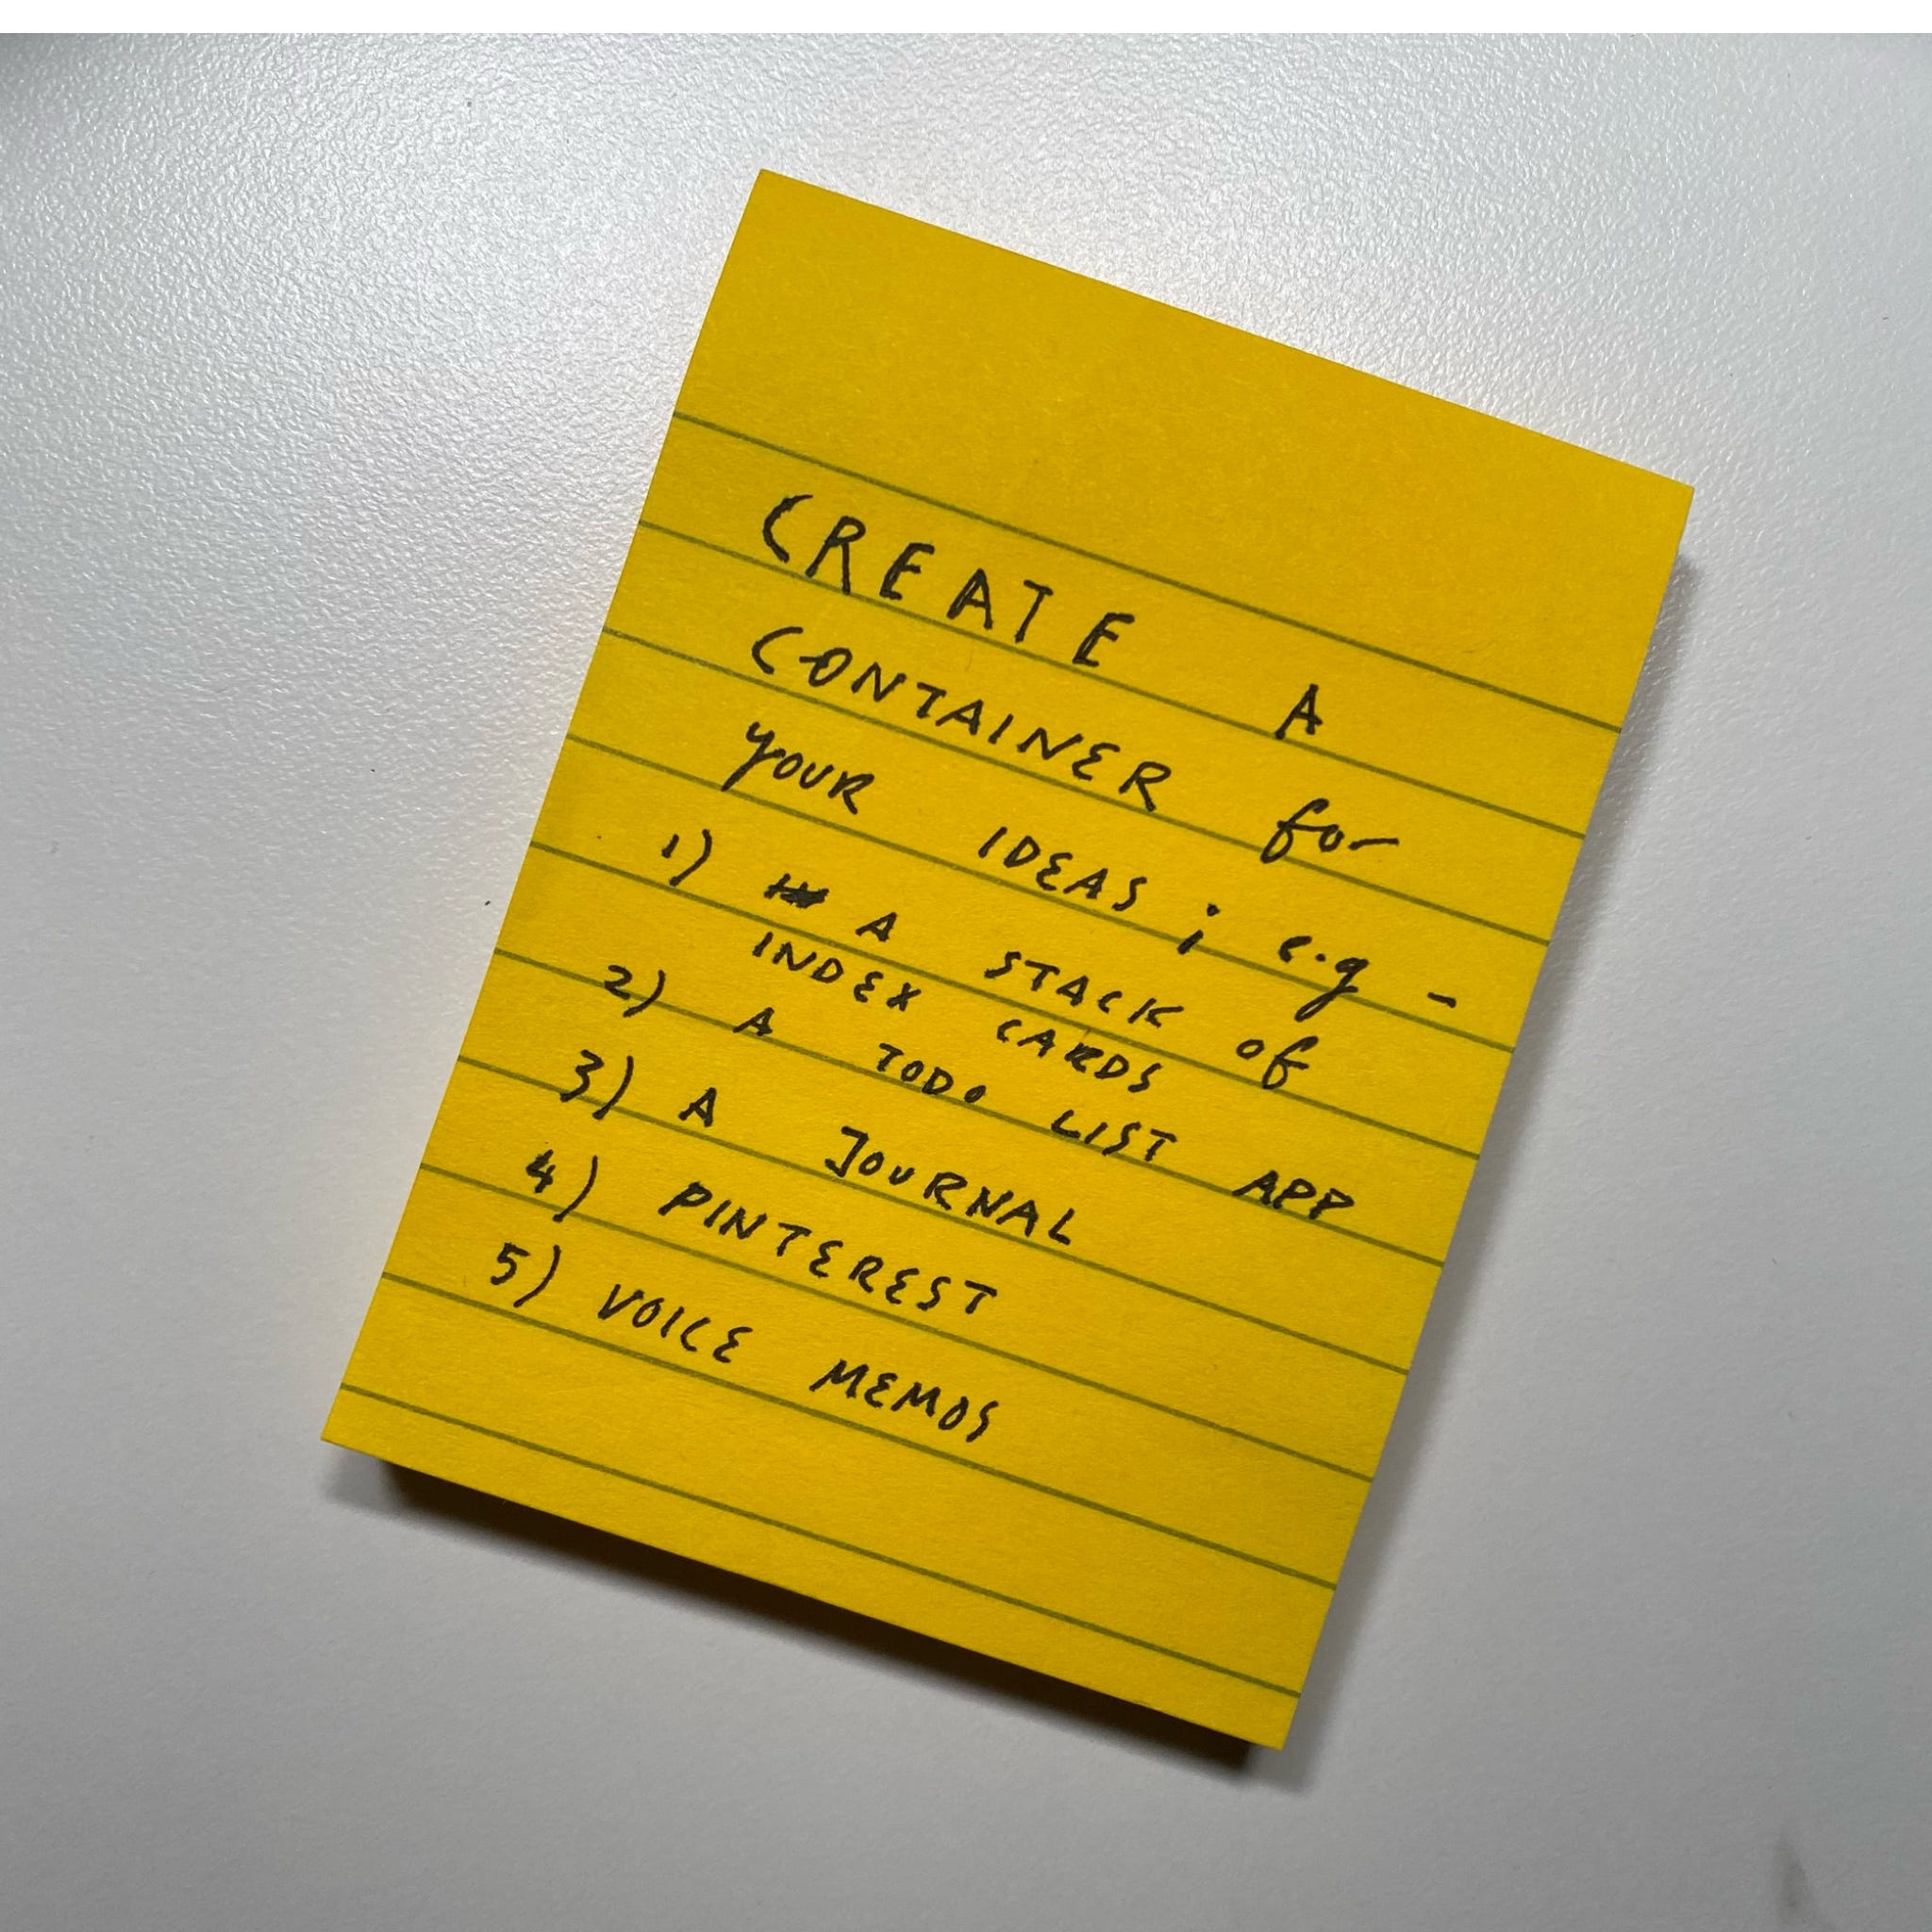 CREATE A
CONTAINER for
YOUR IDEAS; e.g -
1) A STACK of
INDEX CARDS
2) A TODO LIST APP
3) A JOURNAL
4) PINTEREST
5) VOICE MEMOS